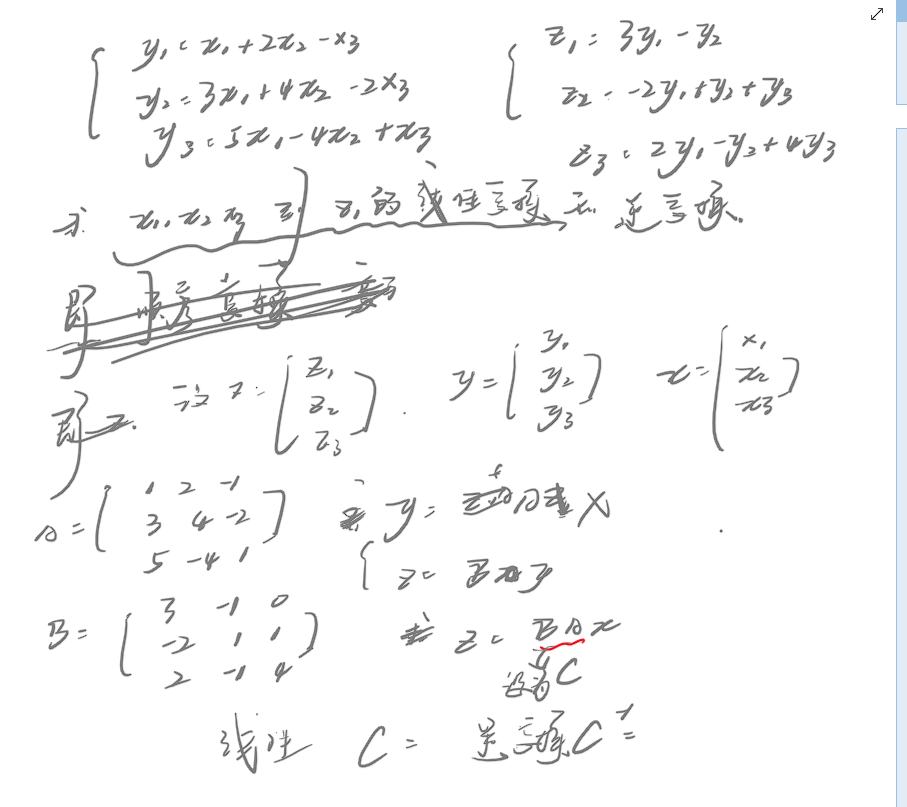 y₁=x₁+2x₂-x₃ z₁=3y₁-y₂
y₂=3x₁+4x₂-2x₃ z₂=-2y₁+y₂+y₃
y₃=5x₁-4x₂+x₃ z₃=2y₁-y₂+4y₃
求 x₁,x₂ x₃ z₁ 的线性变换 和 逆变换.
即
即 设 z= (z₁ z₂ z₃). y= (y₁ y₂ y₃) x= (x₁ x₂ x₃)
A= (1 2 -1
3 4 -2
5 -4 1) y= A X
z= B y
B= (3 -1 0
-2 1 1
2 -1 4) z= BA x
设为 C
线性 C= 逆变换 C⁻¹=